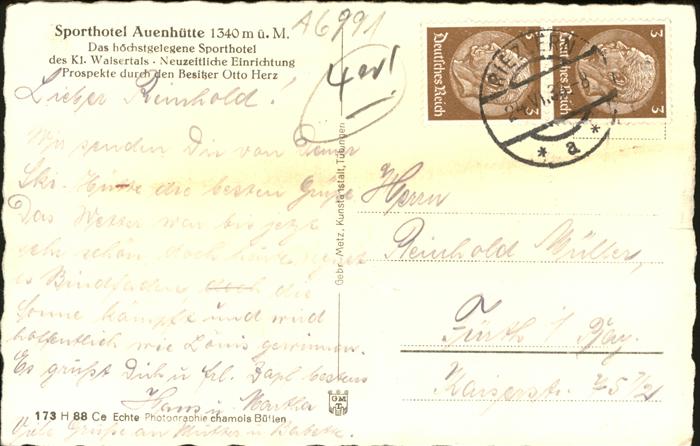 Sporthotel Auenhütte 1340 m ü. M.
Das höchstgelegene Sporthotel
des Kl. Walsertals - Neuzeitliche Einrichtung
Prospekte durch den Besitzer Otto Herz
A6991
Lieber Reinhold!
Wir senden Dir von Deiner
Ski-Hütte die besten Grüße
Das Wetter war bis jetzt
sehr schön, doch heute regnet
es Bindfaden, doch die
Sonne kämpft und wird
hoffentlich wie Löwis gewinnen.
Es grüßt Dich u. Frl. Zapl bestens
Hans u. Martha
Viele Grüße an Mutter u. Babette.
173 H 88 Ce Echte Photographie chamois Bütten
Gebr. Metz, Kunstanstalt, Tübingen
GMT
Deutsches Reich 3
Deutsches Reich 3
RIEZLERN
a
Herrn
Reinhold Müller,
Fürth i/ Bay.
Kaiserstr.